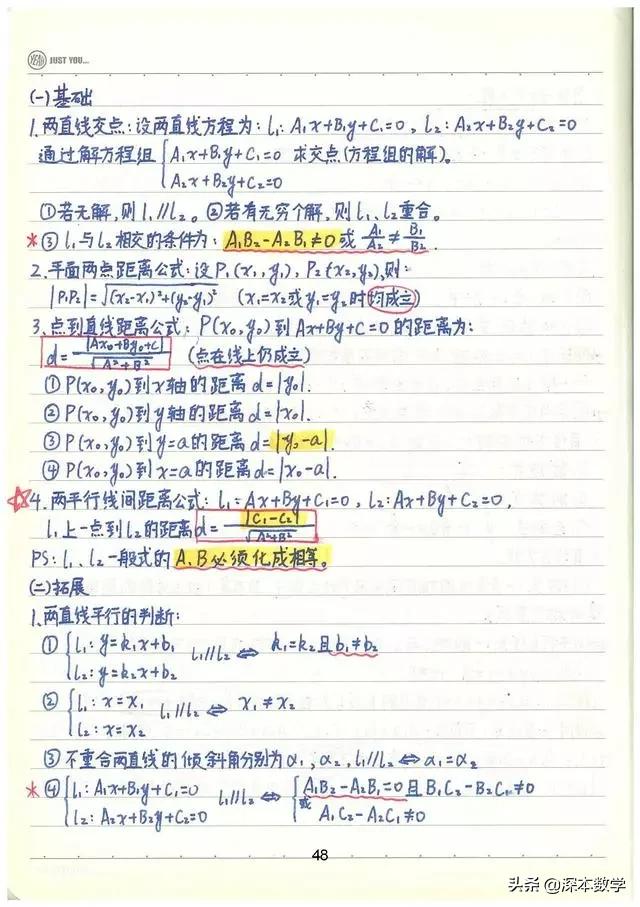 YEAH JUST YOU...
(一)基础
1.两直线交点:设两直线方程为:l₁:A₁x+B₁y+C₁=0,l₂:A₂x+B₂y+C₂=0
通过解方程组{A₁x+B₁y+C₁=0 求交点(方程组的解)。
A₂x+B₂y+C₂=0
①若无解,则l₁//l₂。②若有无穷个解,则l₁、l₂重合。
*③l₁与l₂相交的条件为:A₁B₂-A₂B₁≠0或A₁/A₂≠B₁/B₂.
2.平面两点距离公式:设P₁(x₁,y₁),P₂(x₂,y₂),则:
|P₁P₂|=√(x₂-x₁)²+(y₂-y₁)² (x₁=x₂或y₁=y₂时均成立)
3.点到直线距离公式:P(x₀,y₀)到Ax+By+C=0的距离为:
d=|Ax₀+By₀+C|/√A²+B² (点在线上仍成立)
①P(x₀,y₀)到x轴的距离d=|y₀|.
②P(x₀,y₀)到y轴的距离d=|x₀|.
③P(x₀,y₀)到y=a的距离d=|y₀-a|.
④P(x₀,y₀)到x=a的距离d=|x₀-a|.
☆4.两平行线间距离公式:l₁=Ax+By+C₁=0,l₂:Ax+By+C₂=0,
l₁上一点到l₂的距离d=|C₁-C₂|/√A²+B²
PS:l₁、l₂一般式的A、B必须化成相等。
(二)拓展
1.两直线平行的判断:
①{l₁:y=k₁x+b₁ l₁//l₂⇔k₁=k₂且b₁≠b₂
l₂:y=k₂x+b₂
②{l₁:x=x₁ l₁//l₂⇔x₁≠x₂
l₂:x=x₂
③不重合两直线的倾斜角分别为α₁,α₂,l₁//l₂⇔α₁=α₂
*④{l₁:A₁x+B₁y+C₁=0 l₁//l₂⇔{A₁B₂-A₂B₁=0且B₁C₂-B₂C₁≠0
l₂:A₂x+B₂y+C₂=0 或 A₁C₂-A₂C₁≠0
48
头条@深本数学